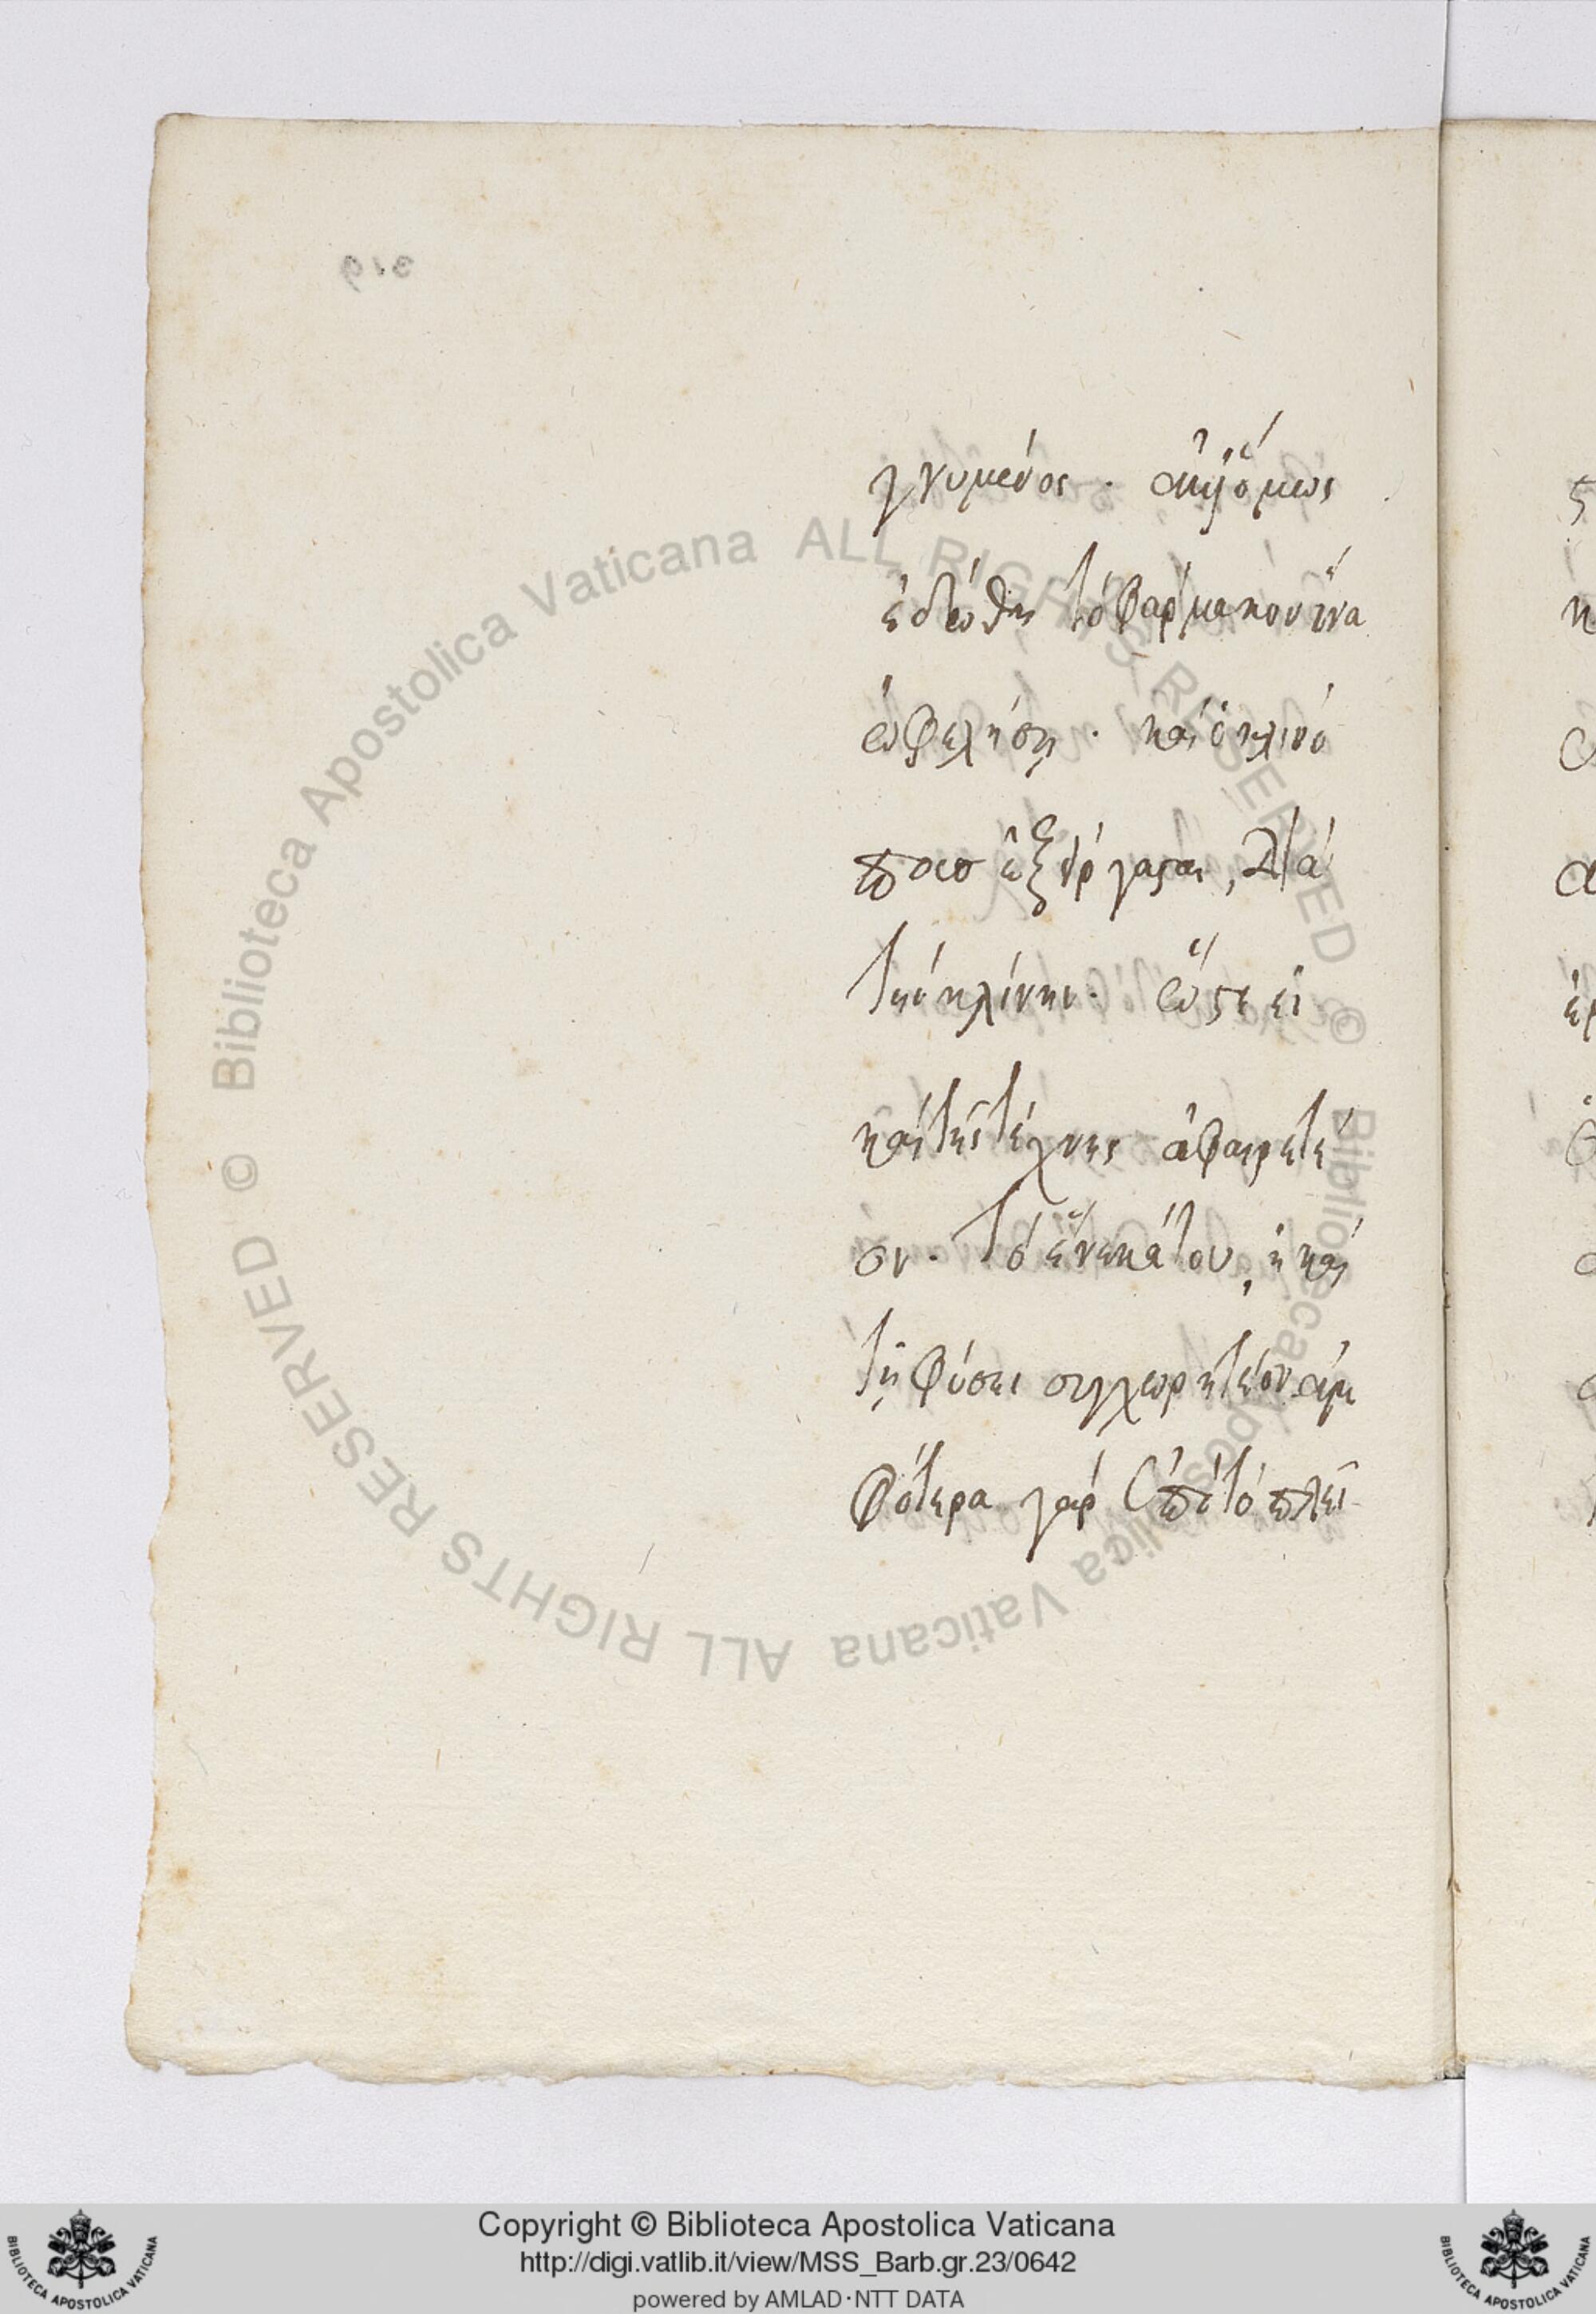 γνυμένος. ἀλλ' ὅμως
ἐδεήθη τὸ φάρμακον ἵνα
ὠφελήσῃ. καὶ ὁ κλινο
ποιὸς ἐξείργασται, διὰ
τὴν κλίνην. ὥστε εἰ
καὶ τῆς τέχνης ἀφαιρετέ
ον. τὸ ἕνεκά του, ἢ καὶ
τῇ φύσει συγχωρητέον ἀμ
φότερα γὰρ ἐπὶ τὸ πλεῖ
319
Biblioteca Apostolica Vaticana ALL RIGHTS RESERVED ©
Biblioteca Apostolica Vaticana ALL RIGHTS RESERVED ©
Copyright © Biblioteca Apostolica Vaticana
http://digi.vatlib.it/view/MSS_Barb.gr.23/0642
powered by AMLAD·NTT DATA
BIBLIOTECA APOSTOLICA VATICANA
BIBLIOTECA APOSTOLICA VATICANA